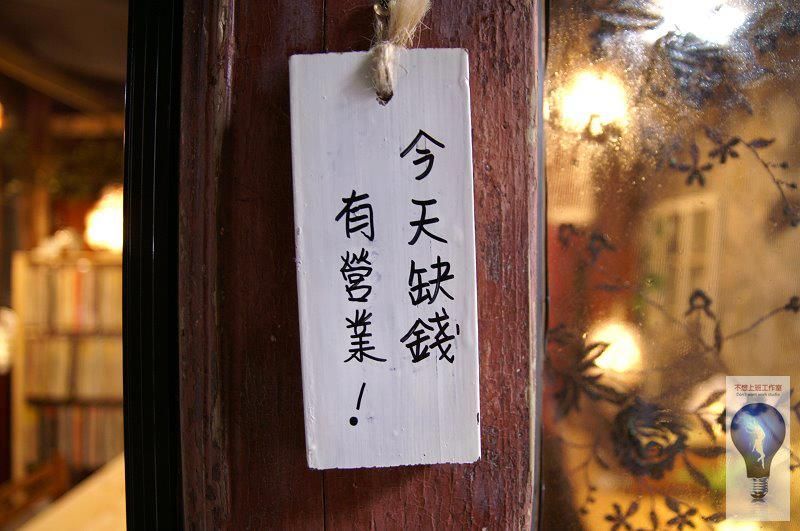 今天缺錢
有營業！
不想上班工作室
Don't want work studio